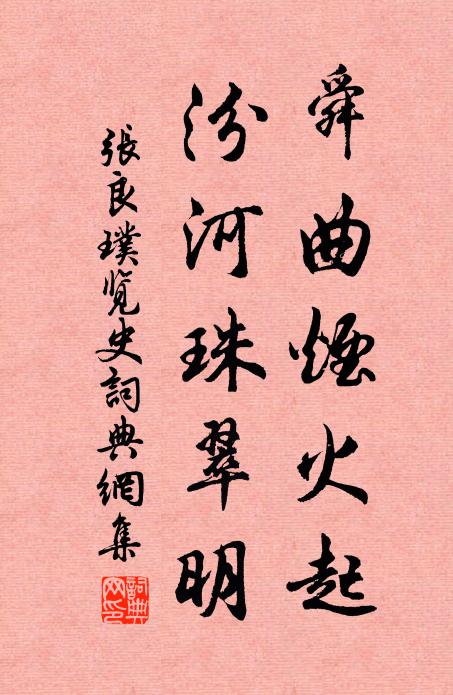 舜曲煙火起
汾河珠翠明
張良璞覽史詞典網集
詞典网印